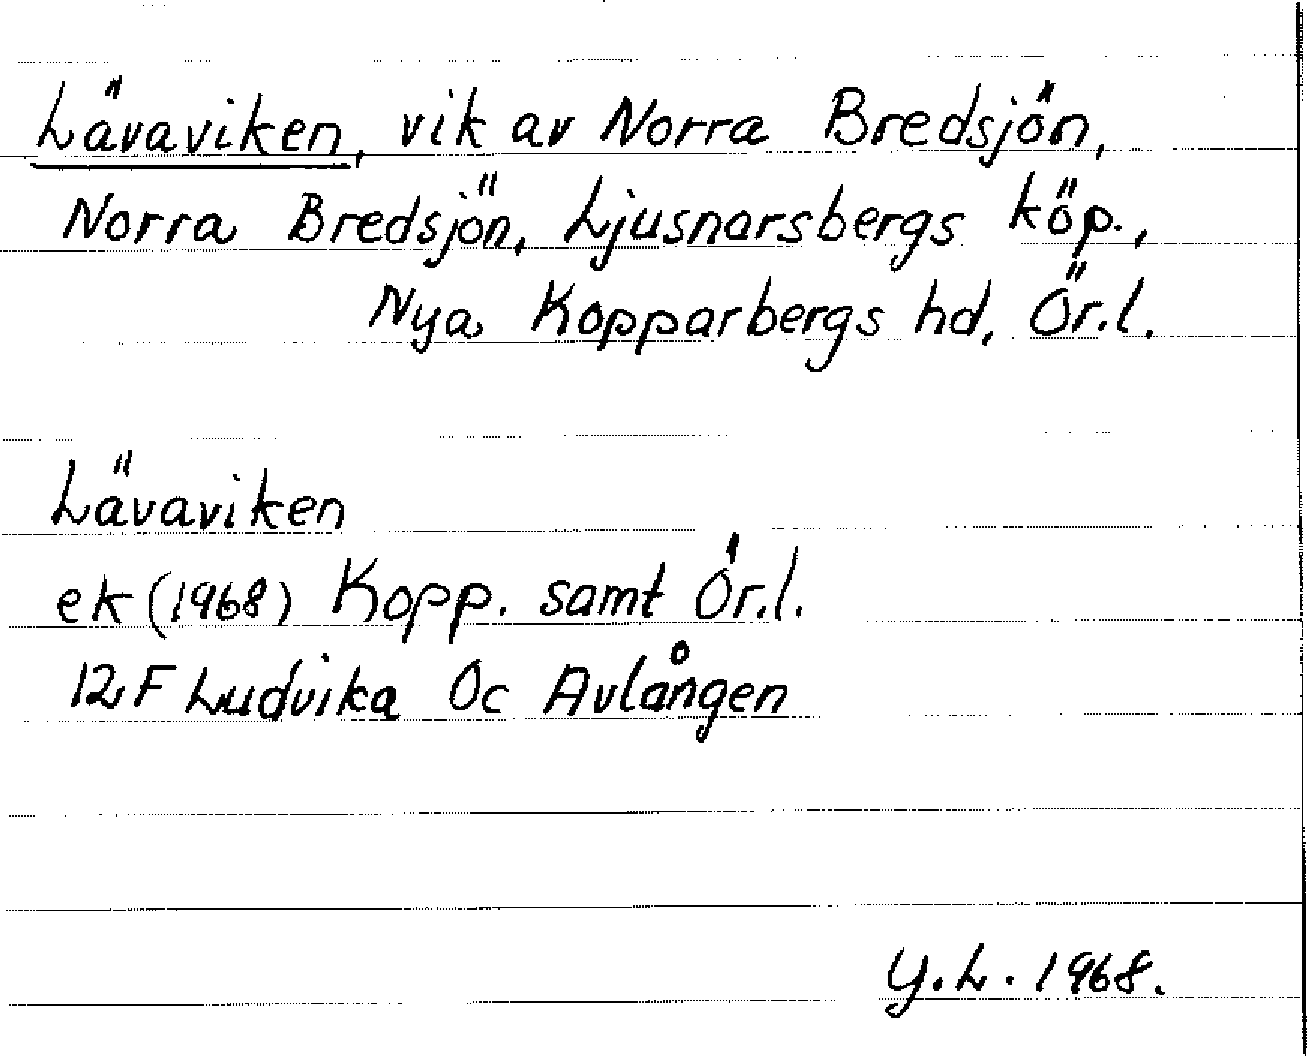 Lävaviken, vik av Norra Bredsjön,
Norra Bredsjön, Ljusnarsbergs köp.,
Nya Kopparbergs hd, Ör.l.
Lävaviken
ek (1968) Kopp. samt Ör.l.
12F Ludvika 0c Avlången
Y.L. 1968.